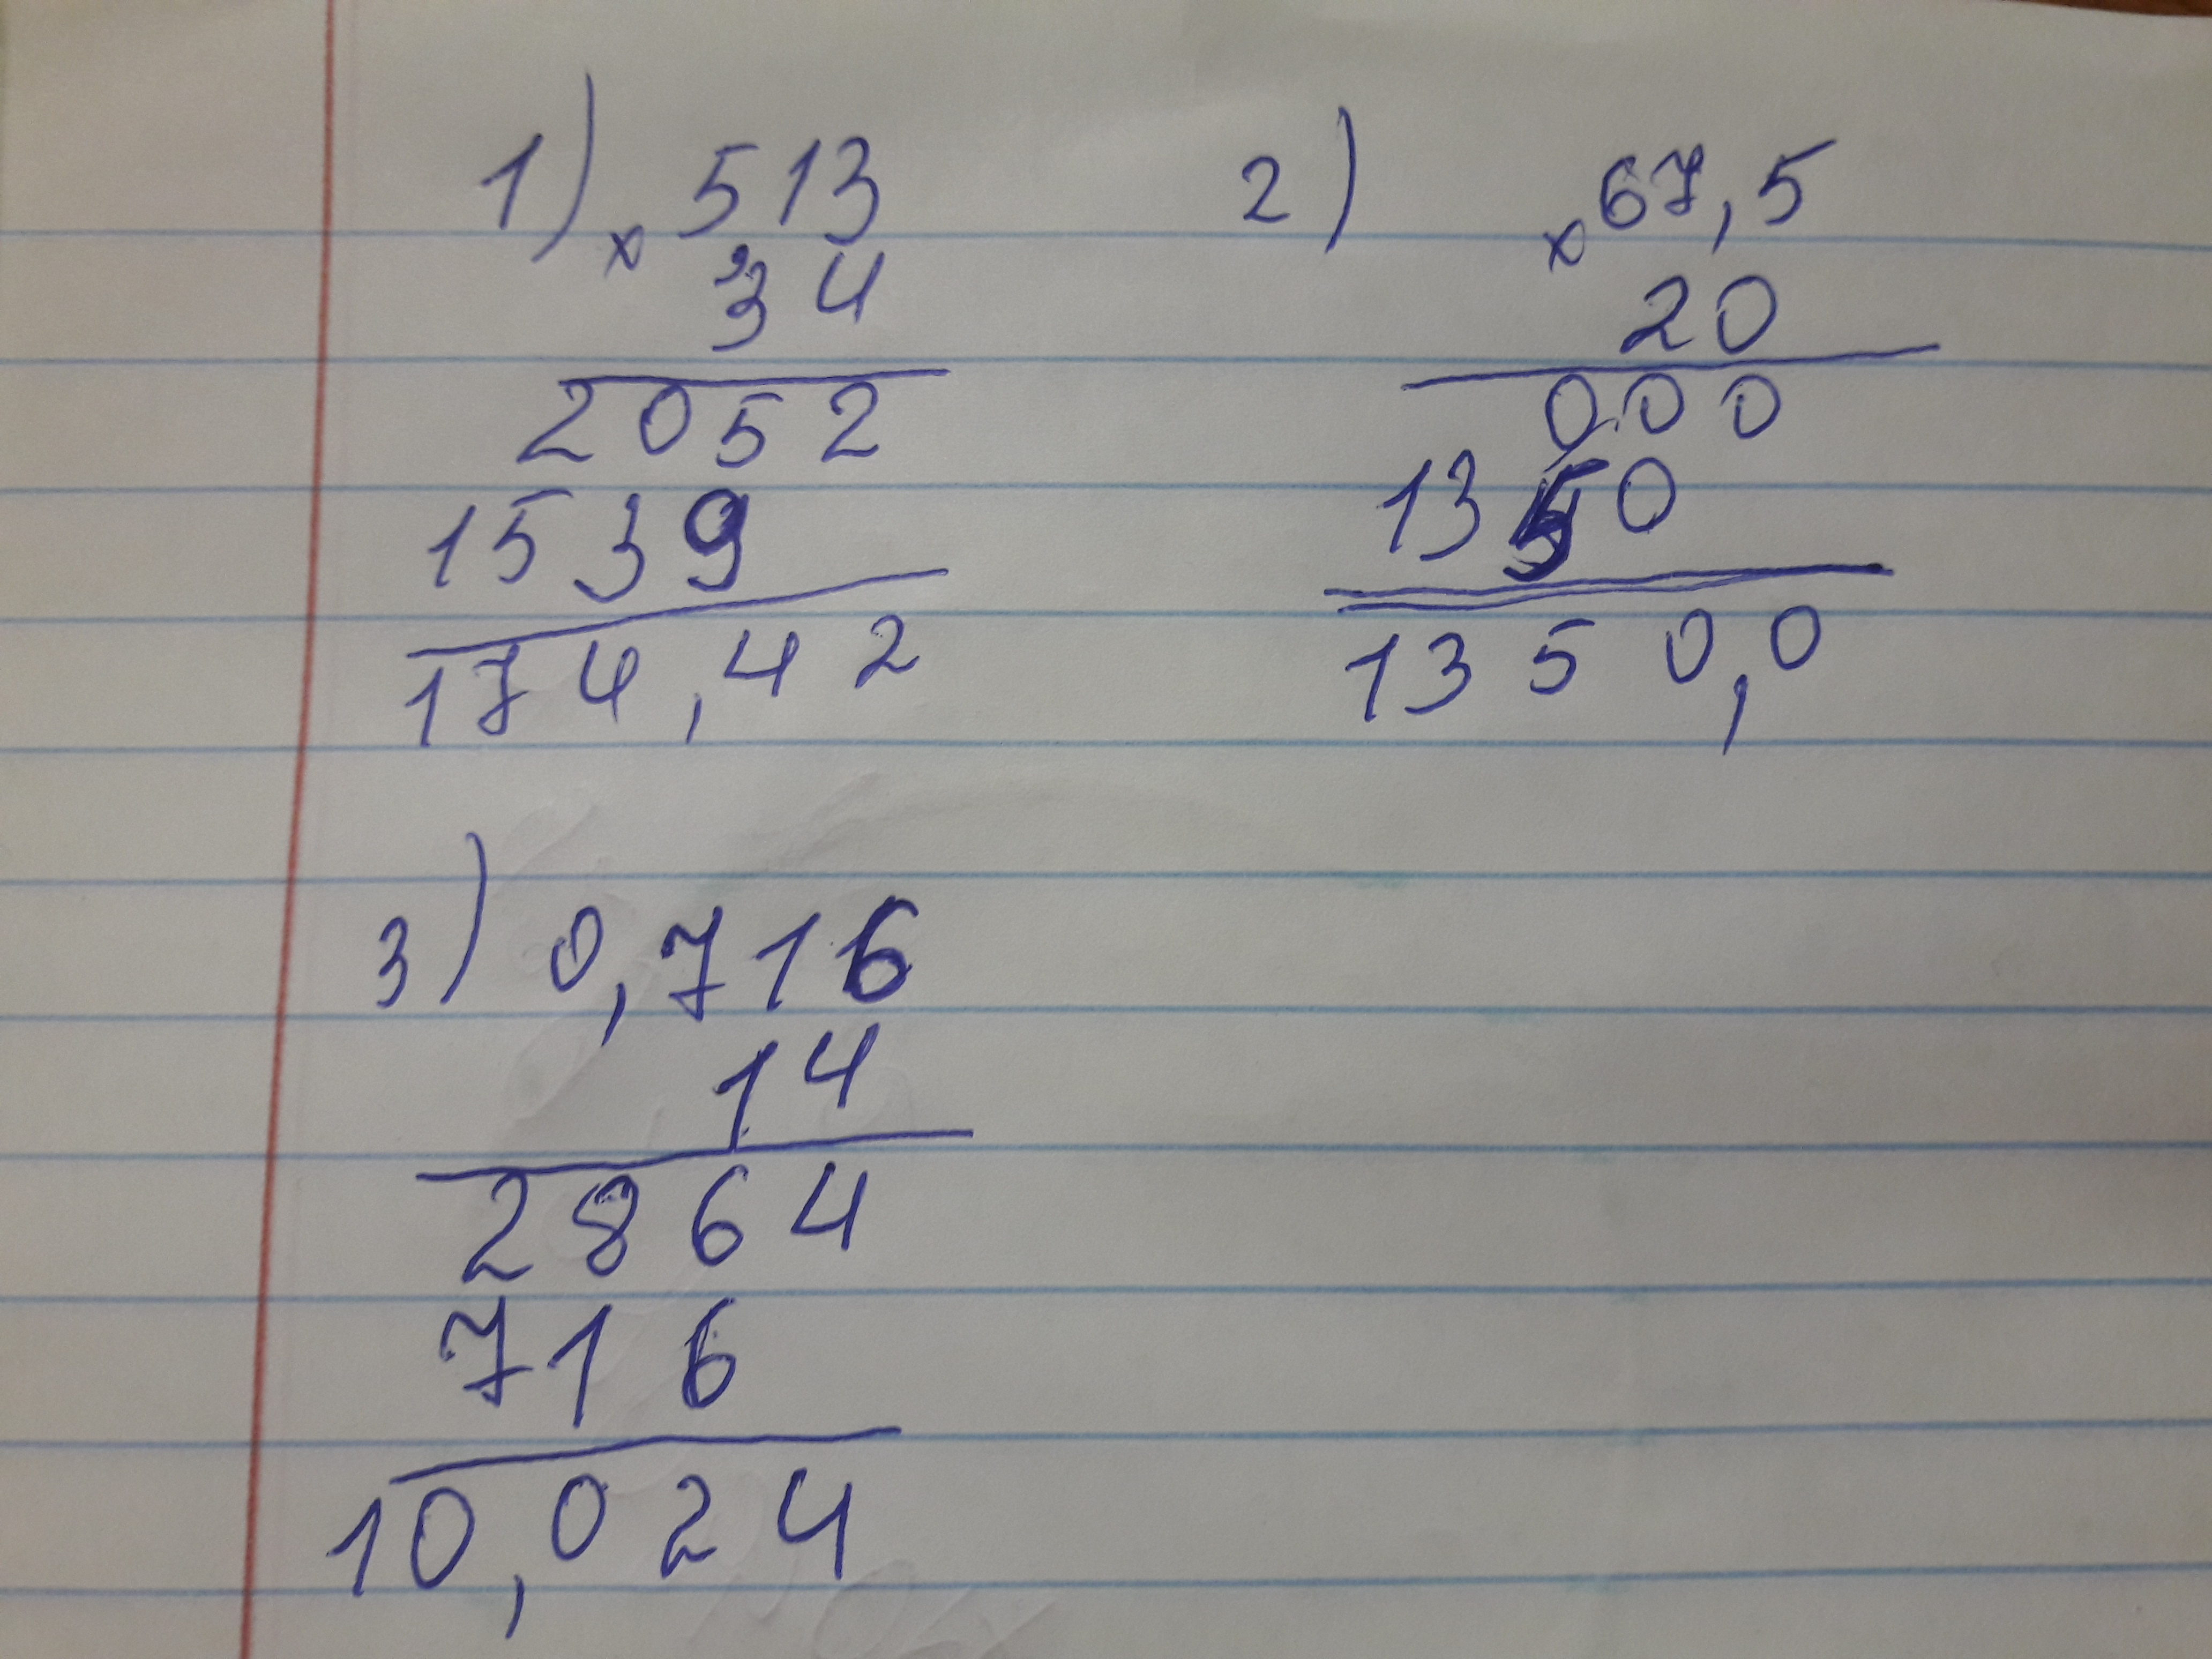 1) x 513
34
2052
1539
174,42
2) x 67,5
20
000
1350
1350,0
3) 0,716
14
2864
716
10,024